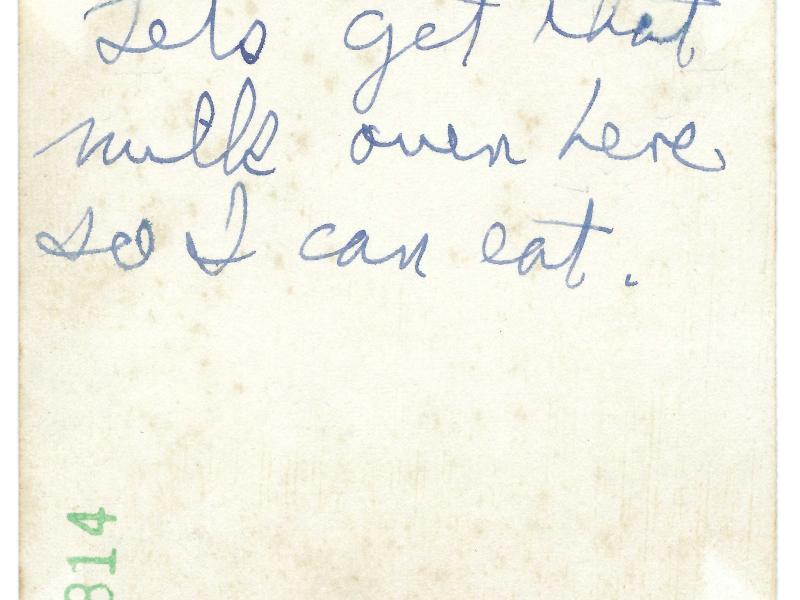 Lets get that
milk over here
so I can eat.
814